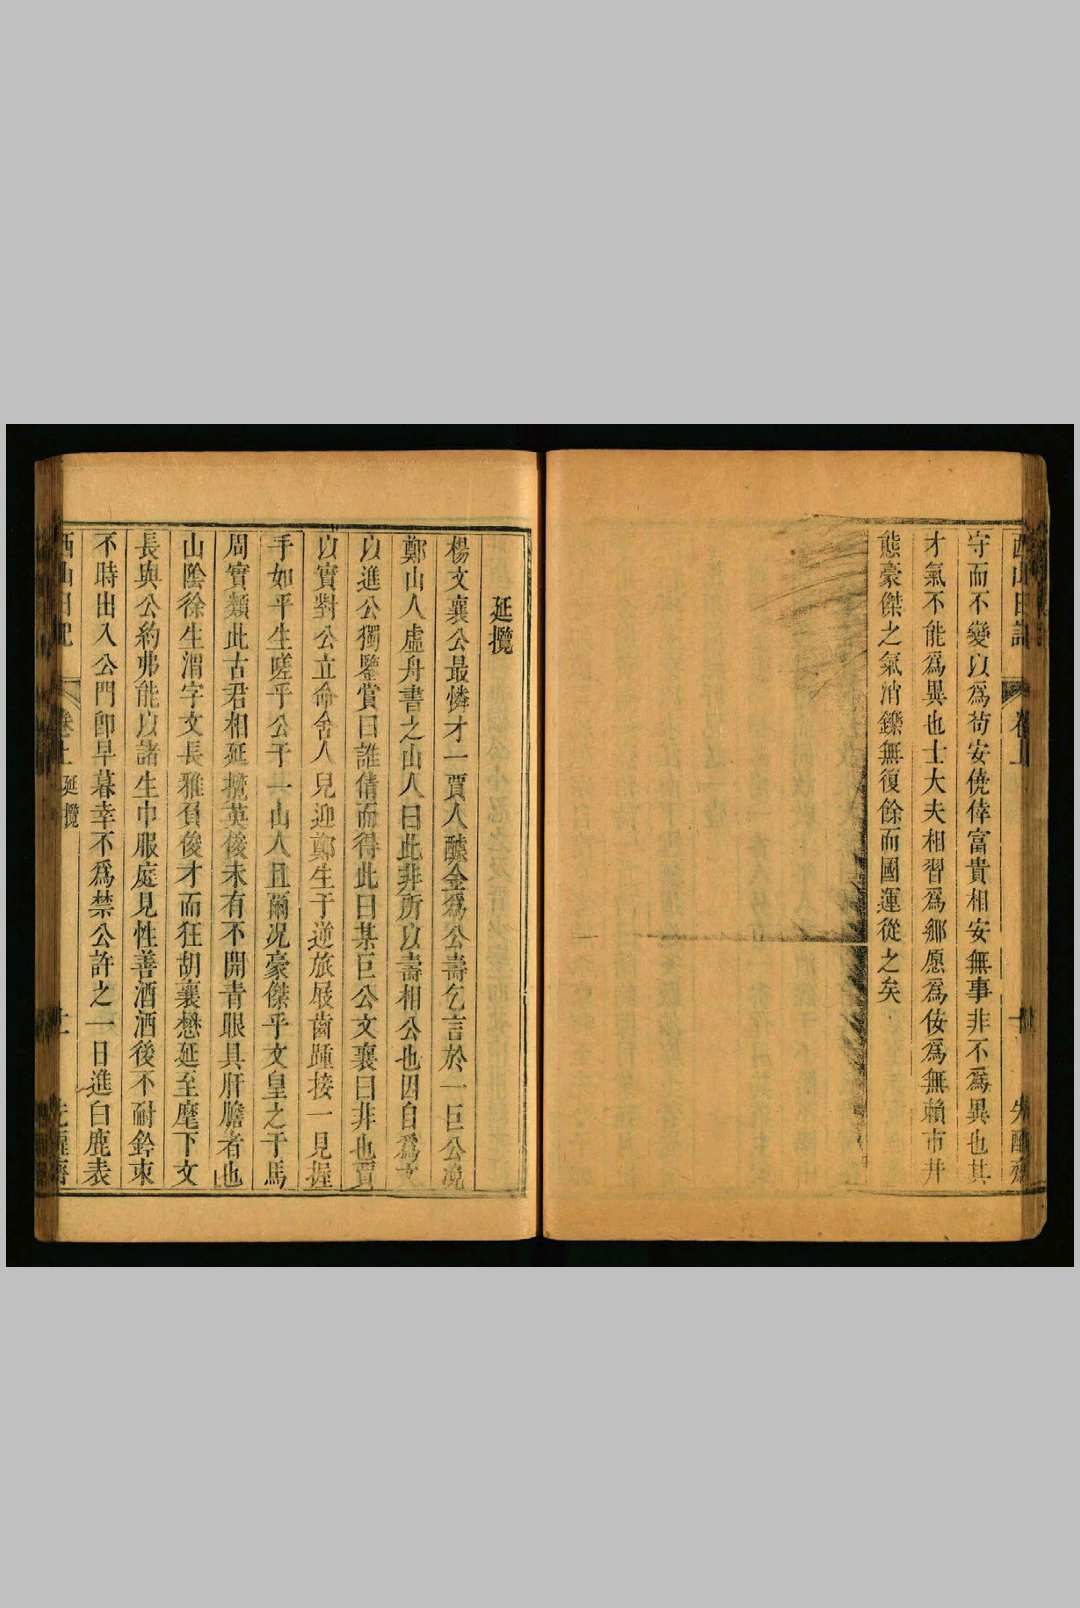 西山日記 卷上 一 先醒齋
守而不變以爲苟安僥倖富貴相安無事非不爲異也其
才氣不能爲異也士大夫相習爲鄉愿爲佞爲無賴市井
態豪傑之氣消鑠無復餘而國運從之矣
延攬
楊文襄公最憐才一賈人醵金爲公壽乞言於一巨公浼
鄭山人虛舟書之山人曰此非所以壽相公也因自爲文
以進公獨鑒賞曰誰倩而得此曰某巨公文襄曰非也賈
以實對公立命舍人兒迎鄭生于逆旅屐齒踵接一見握
手如平生嗟乎公于一山人且爾况豪傑乎文皇之于馬
周實類此古君相延攬英俊未有不開青眼具肝膽者也
山陰徐生渭字文長雅負俊才而狂胡襄懋延至麾下文
長與公約弗能以諸生巾服庭見性善酒酒後不耐鈐束
不時出入公門卽早暮幸不爲禁公許之一日進白鹿表
西山日記 卷上 延攬 先醒齋